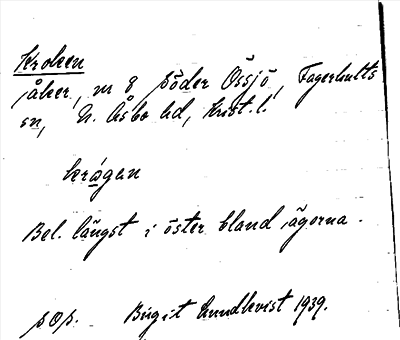 Kroken
åker, nr 8 söder Össjö, Fagerhults
sn, N. Åsbo hd, Krist. l.
krågan
Bel. längst i öster bland ägorna.
sOp. Birgit Lundkvist 1939.